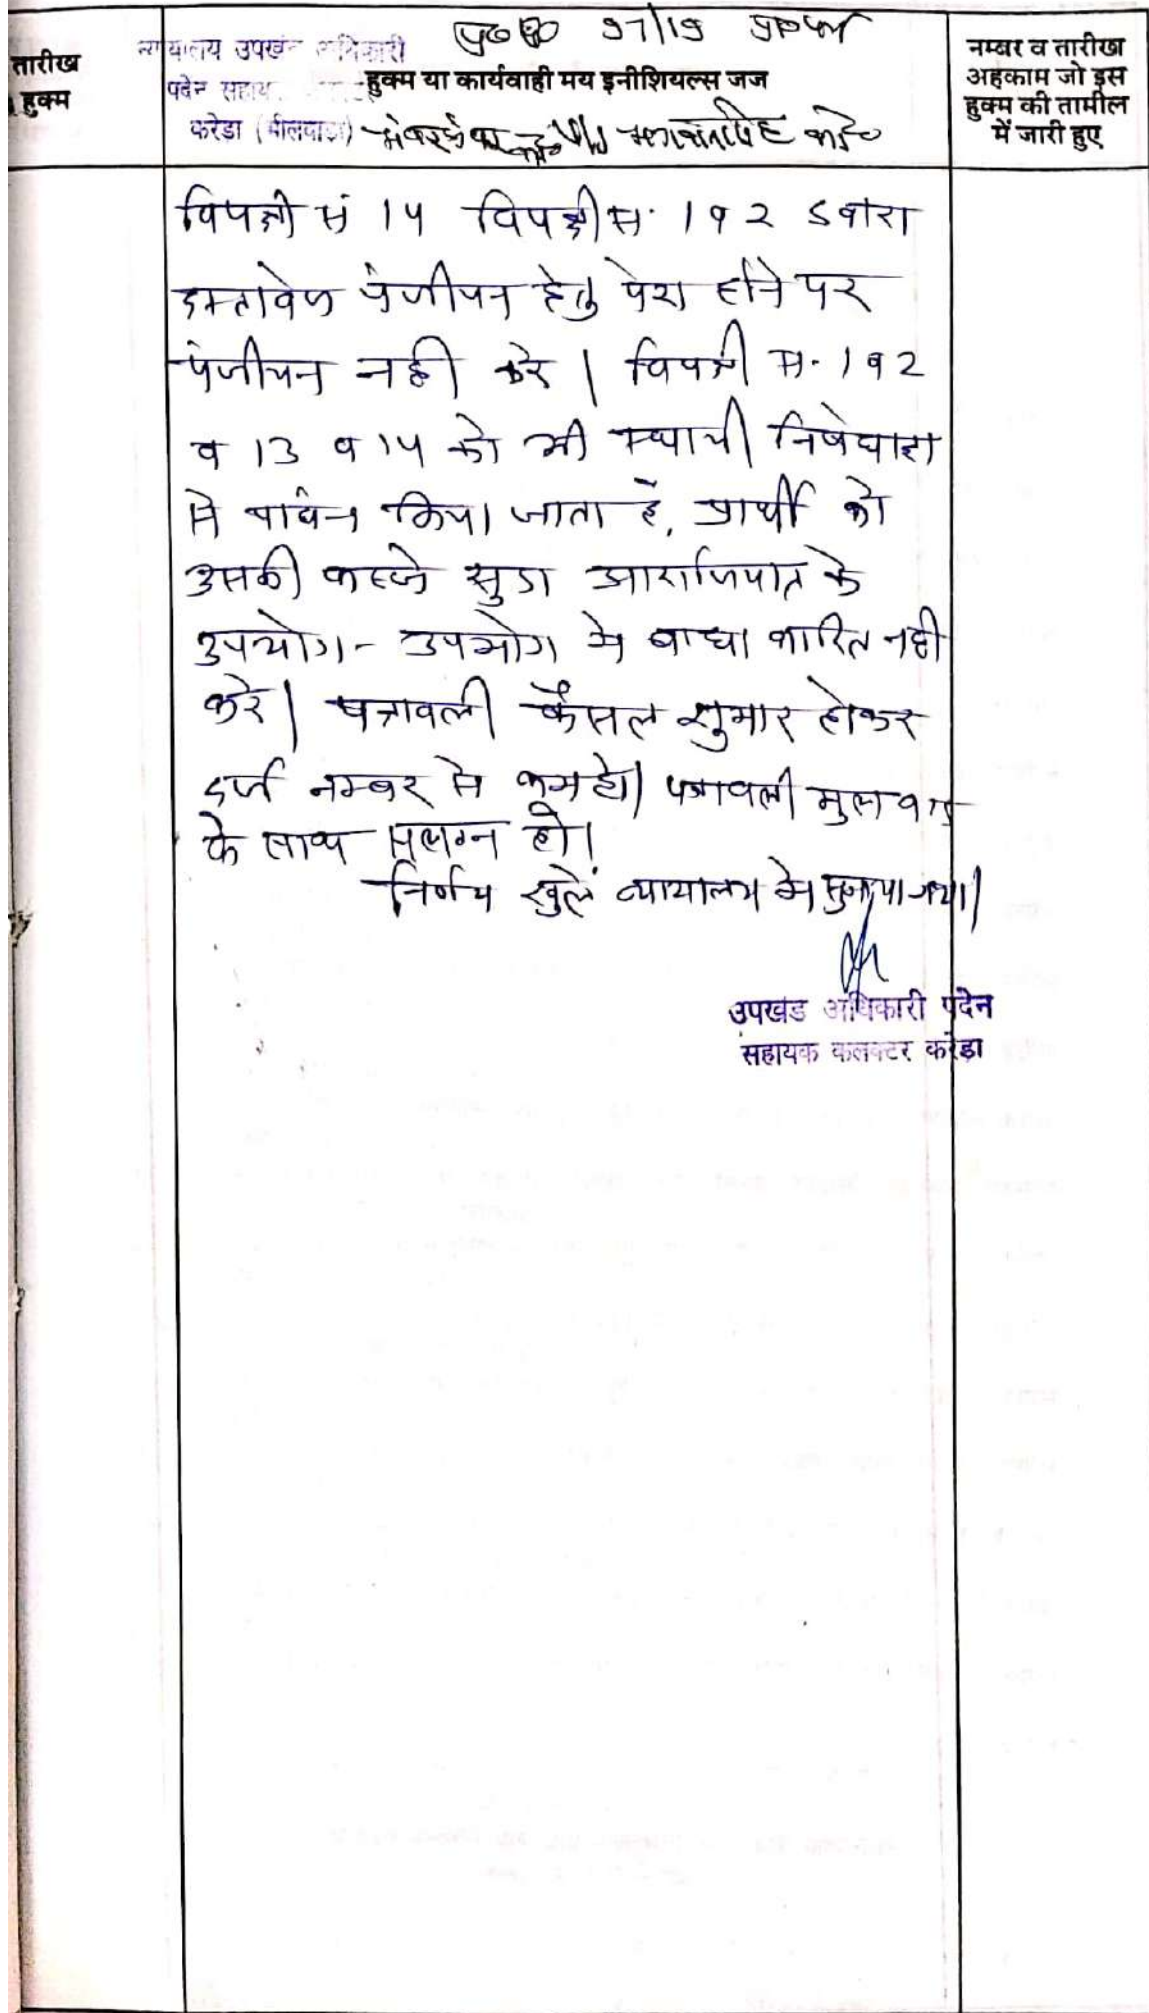 तारीख
हुक्म
न्यायालय उपखंड अधिकारी
पदेन सहाय
करेडा (भीलवाडा)
97/19
हुक्म या कार्यवाही मय इनीशियल्स जज
नम्बर व तारीख
अहकाम जो इस
हुक्म की तामील
में जारी हुए
विपक्षी सं 14 विपक्षी स. 1 व 2 द्वारा
दस्तावेज पंजीयन हेतु पेश होने पर
पंजीयन नही करे | विपक्षी स. 1 व 2
व 13 व 14 को भी स्थायी निषेधाज्ञा
से पाबंद किया जाता है, प्रार्थी को
उसकी कब्जे सुदा आराजियात के
उपयोग - उपभोग मे बाधा कारित नही
करे | पत्रावली फैसल शुमार होकर
दर्ज नम्बर से कम हो | पत्रावली मुल वाद
के साथ संलग्न हो |
निर्णय खुले न्यायालय मे सुनाया गया |
उपखंड अधिकारी पदेन
सहायक कलक्टर करेडा